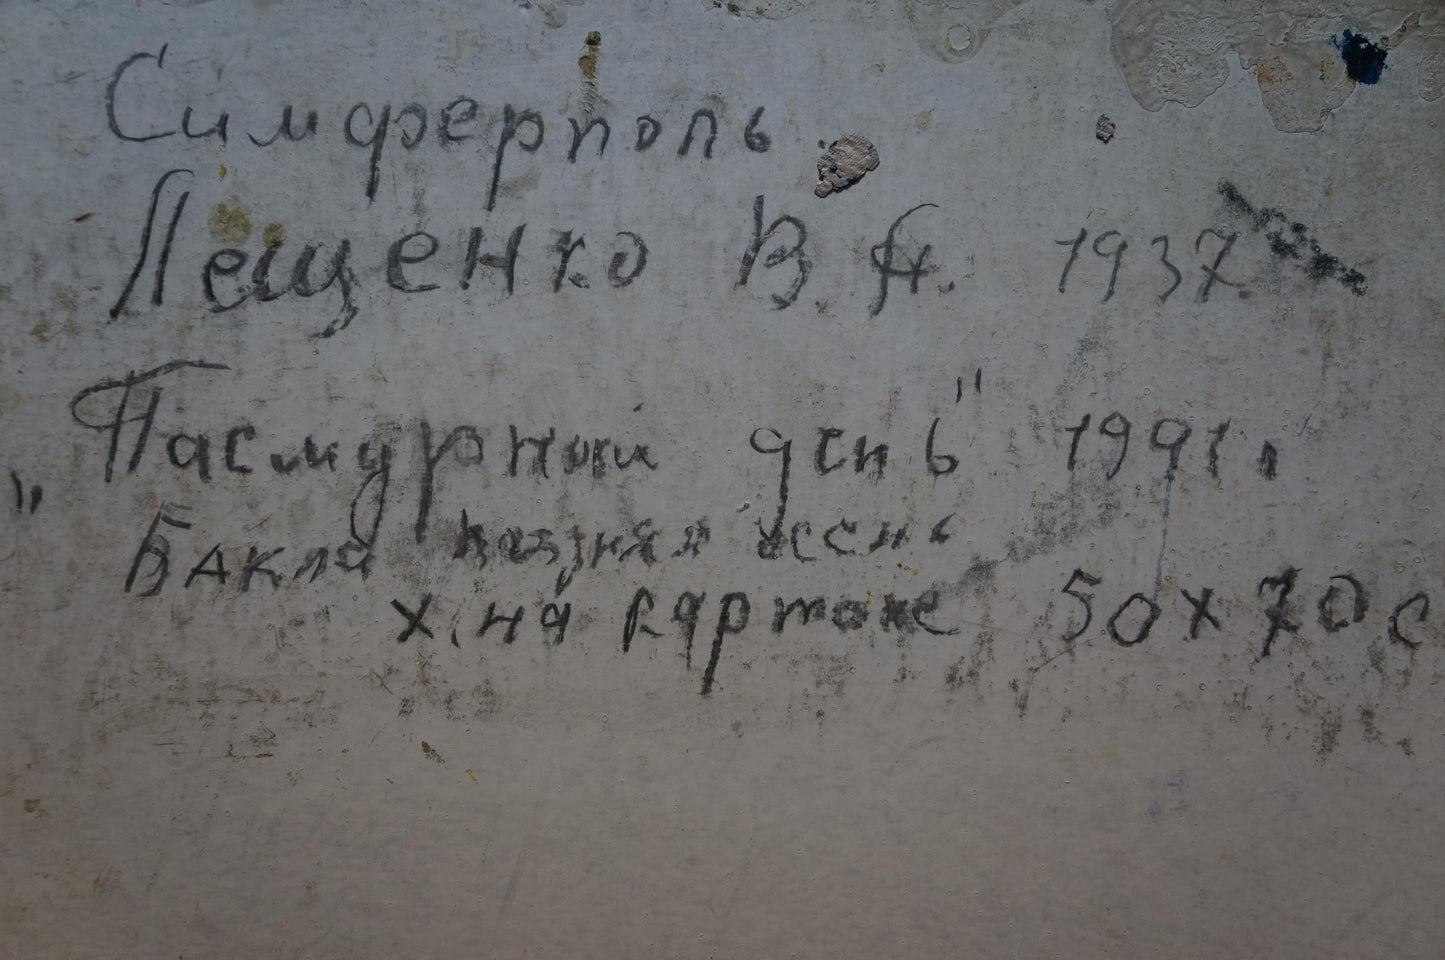 Симферполь.
Лещенко В. А. 1937
"Пасмурный день" 1991г
Бакла поздняя осень
х. на картоне 50х70 с